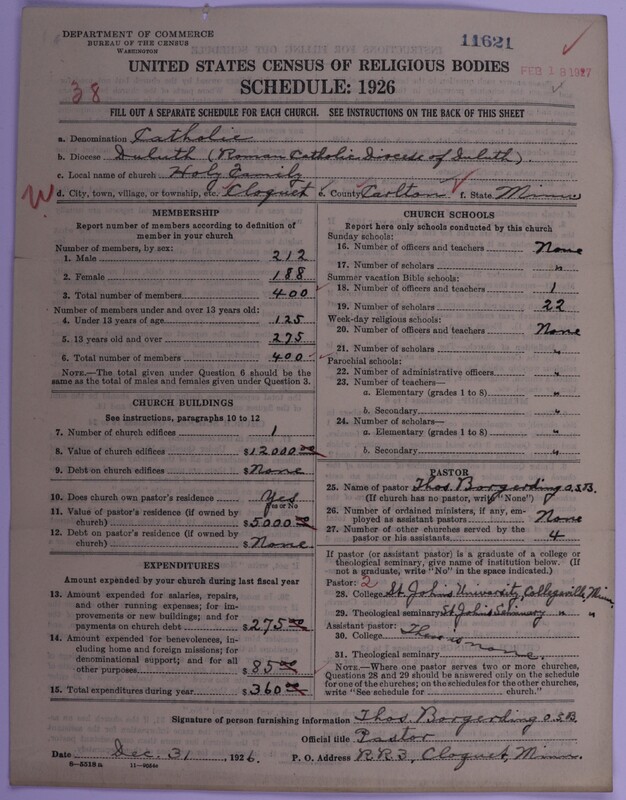 DEPARTMENT OF COMMERCE
BUREAU OF THE CENSUS
WASHINGTON
11621
FEB 18 1927
UNITED STATES CENSUS OF RELIGIOUS BODIES
SCHEDULE: 1926
38
FILL OUT A SEPARATE SCHEDULE FOR EACH CHURCH. SEE INSTRUCTIONS ON THE BACK OF THIS SHEET
a. Denomination Catholic
b. Diocese Duluth (Roman Catholic Diocese of Duluth)
c. Local name of church Holy Family
W
d. City, town, village, or township, etc. Cloquet e. County Carlton f. State Minn
MEMBERSHIP
Report number of members according to definition of
member in your church
Number of members, by sex:
1. Male 212
2. Female 188
3. Total number of members 400
Number of members under and over 13 years old:
4. Under 13 years of age 125
5. 13 years old and over 275
6. Total number of members 400
NOTE.—The total given under Question 6 should be the
same as the total of males and females given under Question 3.
CHURCH BUILDINGS
See instructions, paragraphs 10 to 12
7. Number of church edifices 1
8. Value of church edifices $12000 00
9. Debt on church edifices $None
10. Does church own pastor's residence Yes
Yes or No
11. Value of pastor's residence (if owned by
church) $5000 00
12. Debt on pastor's residence (if owned by
church) $None
EXPENDITURES
Amount expended by your church during last fiscal year
13. Amount expended for salaries, repairs,
and other running expenses; for im-
provements or new buildings; and for
payments on church debt $275 00
14. Amount expended for benevolences, in-
cluding home and foreign missions; for
denominational support; and for all
other purposes $85 00
15. Total expenditures during year $360 00
CHURCH SCHOOLS
Report here only schools conducted by this church
Sunday schools:
16. Number of officers and teachers None
17. Number of scholars "
Summer vacation Bible schools:
18. Number of officers and teachers 1
19. Number of scholars 22
Week-day religious schools:
20. Number of officers and teachers None
21. Number of scholars "
Parochial schools:
22. Number of administrative officers "
23. Number of teachers—
a. Elementary (grades 1 to 8) "
b. Secondary "
24. Number of scholars—
a. Elementary (grades 1 to 8) "
b. Secondary "
PASTOR
25. Name of pastor Thos. Borgerding O.S.B.
(If church has no pastor, write "None")
26. Number of ordained ministers, if any, em-
ployed as assistant pastors None
27. Number of other churches served by the
pastor or his assistants 4
If pastor (or assistant pastor) is a graduate of a college or
theological seminary, give name of institution below. (If
not a graduate, write "No" in the space indicated.)
Pastor: 2
28. College St. John's University, Collegeville, Minn.
29. Theological seminary St John's Seminary " "
Assistant pastor:
30. College There is none.
31. Theological seminary
NOTE.—Where one pastor serves two or more churches,
Questions 28 and 29 should be answered only on the schedule
for one of the churches; on the schedules for the other churches,
write "See schedule for church."
Signature of person furnishing information Thos. Borgerding O.S.B.
Official title Pastor
Date Dec. 31, 1926. P. O. Address R.R.3, Cloquet, Minn.
8—5518a 11—9594